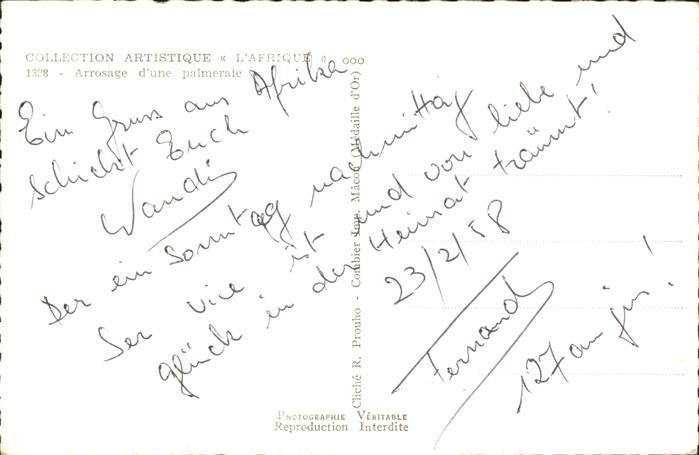 COLLECTION ARTISTIQUE « L'AFRIQUE » ooo
1328 - Arrosage d'une palmeraie
Ein Gruss aus Afrika
schickt Euch
Der ein Sonntag nachmittag
Ser vice ist und von liebe und
glück in der Heimat träumt!
23/2/58
Fernand
127 au jus!
Cliché R. Prouho - Combier Imp. Mâcon (Médaille d'Or)
PHOTOGRAPHIE VÉRITABLE
Reproduction Interdite